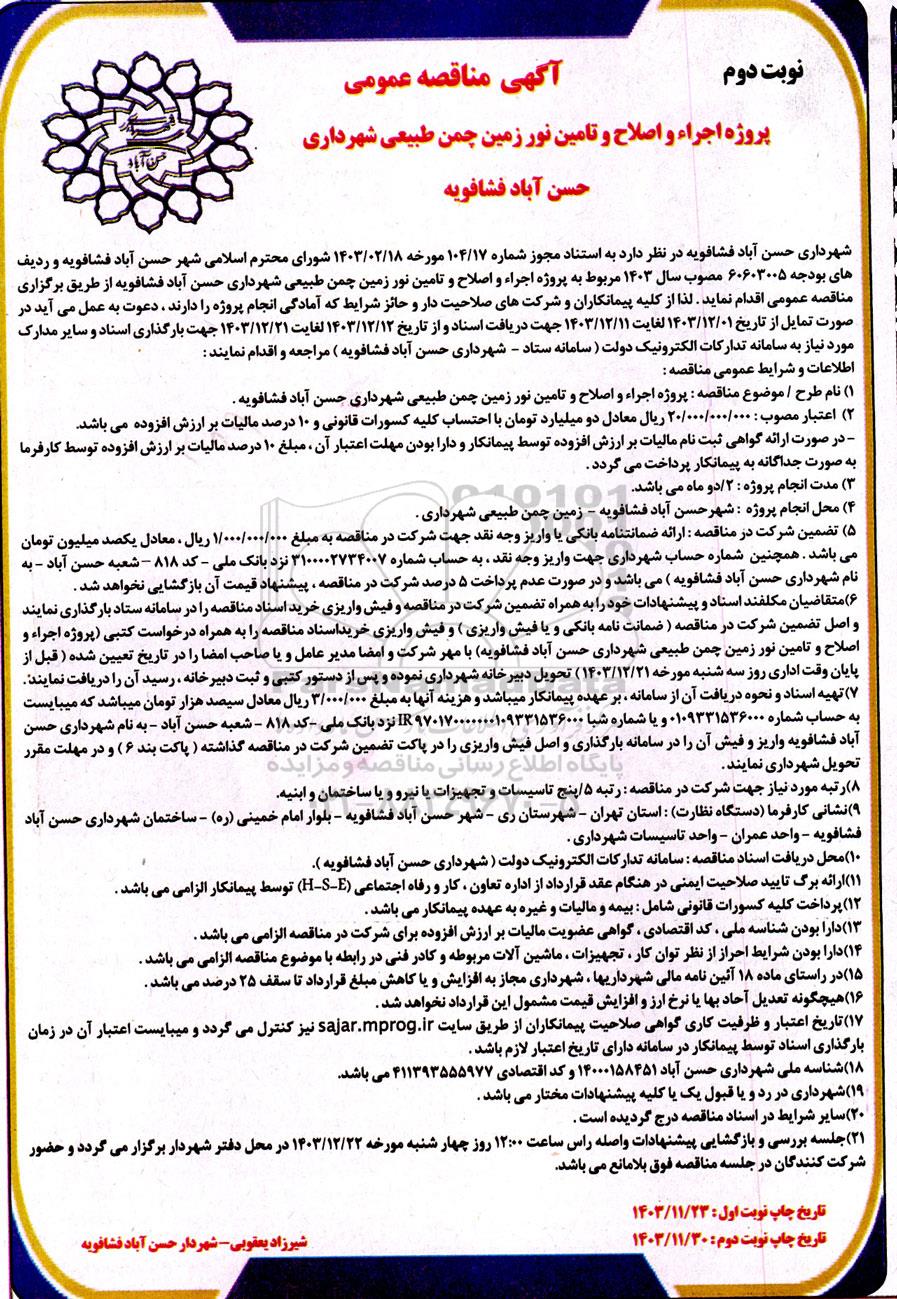 نوبت دوم
آگهی مناقصه عمومی
پروژه اجراء و اصلاح و تامین نور زمین چمن طبیعی شهرداری
حسن آباد فشافویه
شهرداری حسن آباد فشافویه در نظر دارد به استناد مجوز شماره ۱۰۴/۱۷ مورخه ۱۴۰۳/۰۲/۱۸ شورای محترم اسلامی شهر حسن آباد فشافویه و ردیف
های بودجه ۶۰۶۰۳۰۰۵ مصوب سال ۱۴۰۳ مربوط به پروژه اجراء و اصلاح و تامین نور زمین چمن طبیعی شهرداری حسن آباد فشافویه از طریق برگزاری
مناقصه عمومی اقدام نماید . لذا از کلیه پیمانکاران و شرکت های صلاحیت دار و حائز شرایط که آمادگی انجام پروژه را دارند ، دعوت به عمل می آید در
صورت تمایل از تاریخ ۱۴۰۳/۱۲/۰۱ لغایت ۱۴۰۳/۱۲/۱۱ جهت دریافت اسناد و از تاریخ ۱۴۰۳/۱۲/۱۲ لغایت ۱۴۰۳/۱۲/۲۱ جهت بارگذاری اسناد و سایر مدارک
مورد نیاز به سامانه تدارکات الکترونیک دولت ( سامانه ستاد - شهرداری حسن آباد فشافویه ) مراجعه و اقدام نمایند :
اطلاعات و شرایط عمومی مناقصه :
۱) نام طرح / موضوع مناقصه : پروژه اجراء و اصلاح و تامین نور زمین چمن طبیعی شهرداری حسن آباد فشافویه .
۲) اعتبار مصوب : ۲۰/۰۰۰/۰۰۰/۰۰۰ ریال معادل دو میلیارد تومان با احتساب کلیه کسورات قانونی و ۱۰ درصد مالیات بر ارزش افزوده می باشد.
- در صورت ارائه گواهی ثبت نام مالیات بر ارزش افزوده توسط پیمانکار و دارا بودن مهلت اعتبار آن ، مبلغ ۱۰ درصد مالیات بر ارزش افزوده توسط کارفرما
به صورت جداگانه به پیمانکار پرداخت می گردد .
۳) مدت انجام پروژه : ۲/دو ماه می باشد.
۴) محل انجام پروژه : شهرحسن آباد فشافویه - زمین چمن طبیعی شهرداری .
۵) تضمین شرکت در مناقصه : ارائه ضمانتنامه بانکی یا واریز وجه نقد جهت شرکت در مناقصه به مبلغ ۱/۰۰۰/۰۰۰/۰۰۰ ریال ، معادل یکصد میلیون تومان
می باشد . همچنین شماره حساب شهرداری جهت واریز وجه نقد ، به حساب شماره ۳۱۰۰۰۰۲۷۳۴۰۰۷ نزد بانک ملی - کد ۸۱۸ - شعبه حسن آباد - به
نام شهرداری حسن آباد فشافویه ) می باشد و در صورت عدم پرداخت ۵ درصد شرکت در مناقصه ، پیشنهاد قیمت آن بازگشایی نخواهد شد .
۶)متقاضیان مکلفند اسناد و پیشنهادات خود را به همراه تضمین شرکت در مناقصه و فیش واریزی خرید اسناد مناقصه را در سامانه ستاد بارگذاری نمایند
و اصل تضمین شرکت در مناقصه ( ضمانت نامه بانکی و یا فیش واریزی ) و فیش واریزی خریداسناد مناقصه را به همراه درخواست کتبی (پروژه اجراء و
اصلاح و تامین نور زمین چمن طبیعی شهرداری حسن آباد فشافویه) با مهر شرکت و امضا مدیر عامل و یا صاحب امضا را در تاریخ تعیین شده ( قبل از
پایان وقت اداری روز سه شنبه مورخه ۱۴۰۳/۱۲/۲۱ ) تحویل دبیرخانه شهرداری نموده و پس از دستور کتبی و ثبت دبیرخانه ، رسید آن را دریافت نمایند.
۷)تهیه اسناد و نحوه دریافت آن از سامانه ، بر عهده پیمانکار میباشد و هزینه آنها به مبلغ ۳/۰۰۰/۰۰۰ ریال معادل سیصد هزار تومان میباشد که میبایست
به حساب شماره ۰۱۰۹۳۳۱۵۳۶۰۰۰ و یا شماره شبا IR ۹۷۰۱۷۰۰۰۰۰۰۰۱۰۹۳۳۱۵۳۶۰۰۰ نزد بانک ملی -کد ۸۱۸ - شعبه حسن آباد - به نام شهرداری حسن
آباد فشافویه واریز و فیش آن را در سامانه بارگذاری و اصل فیش واریزی را در پاکت تضمین شرکت در مناقصه گذاشته ( پاکت بند ۶ ) و در مهلت مقرر
تحویل شهرداری نمایند.
۸)رتبه مورد نیاز جهت شرکت در مناقصه : رتبه ۵/پنج تاسیسات و تجهیزات یا نیرو و یا ساختمان و ابنیه.
۹)نشانی کارفرما (دستگاه نظارت) : استان تهران - شهرستان ری - شهر حسن آباد فشافویه - بلوار امام خمینی (ره) - ساختمان شهرداری حسن آباد
فشافویه - واحد عمران - واحد تاسیسات شهرداری .
۱۰)محل دریافت اسناد مناقصه : سامانه تدارکات الکترونیک دولت ( شهرداری حسن آباد فشافویه ).
۱۱)ارائه برگ تایید صلاحیت ایمنی در هنگام عقد قرارداد از اداره تعاون ، کار و رفاه اجتماعی (H-S-E) توسط پیمانکار الزامی می باشد .
۱۲)پرداخت کلیه کسورات قانونی شامل : بیمه و مالیات و غیره به عهده پیمانکار می باشد .
۱۳)دارا بودن شناسه ملی ، کد اقتصادی ، گواهی عضویت مالیات بر ارزش افزوده برای شرکت در مناقصه الزامی می باشد .
۱۴)دارا بودن شرایط احراز از نظر توان کار ، تجهیزات ، ماشین آلات مربوطه و کادر فنی در رابطه با موضوع مناقصه الزامی می باشد .
۱۵)در راستای ماده ۱۸ آئین نامه مالی شهرداریها ، شهرداری مجاز به افزایش و یا کاهش مبلغ قرارداد تا سقف ۲۵ درصد می باشد .
۱۶)هیچگونه تعدیل آحاد بها یا نرخ ارز و افزایش قیمت مشمول این قرارداد نخواهد شد .
۱۷)تاریخ اعتبار و ظرفیت کاری گواهی صلاحیت پیمانکاران از طریق سایت sajar.mprog.ir نیز کنترل می گردد و میبایست اعتبار آن در زمان
بارگذاری اسناد توسط پیمانکار در سامانه دارای تاریخ اعتبار لازم باشد .
۱۸)شناسه ملی شهرداری حسن آباد ۱۴۰۰۰۱۵۸۴۵۱ و کد اقتصادی ۴۱۱۳۹۳۵۵۵۹۷۷ می باشد.
۱۹)شهرداری در رد و یا قبول یک یا کلیه پیشنهادات مختار می باشد .
۲۰)سایر شرایط در اسناد مناقصه درج گردیده است .
۲۱)جلسه بررسی و بازگشایی پیشنهادات واصله راس ساعت ۱۲:۰۰ روز چهار شنبه مورخه ۱۴۰۳/۱۲/۲۲ در محل دفتر شهردار برگزار می گردد و حضور
شرکت کنندگان در جلسه مناقصه فوق بلامانع می باشد.
تاریخ چاپ نوبت اول : ۱۴۰۳/۱۱/۲۳
تاریخ چاپ نوبت دوم : ۱۴۰۳/۱۱/۳۰
شیرزاد یعقوبی- شهردار حسن آباد فشافویه
ParsNamadData
پایگاه اطلاع رسانی مناقصه و مزایده
۰۲۱-۸۸۳۴۹۶۷۰-۵